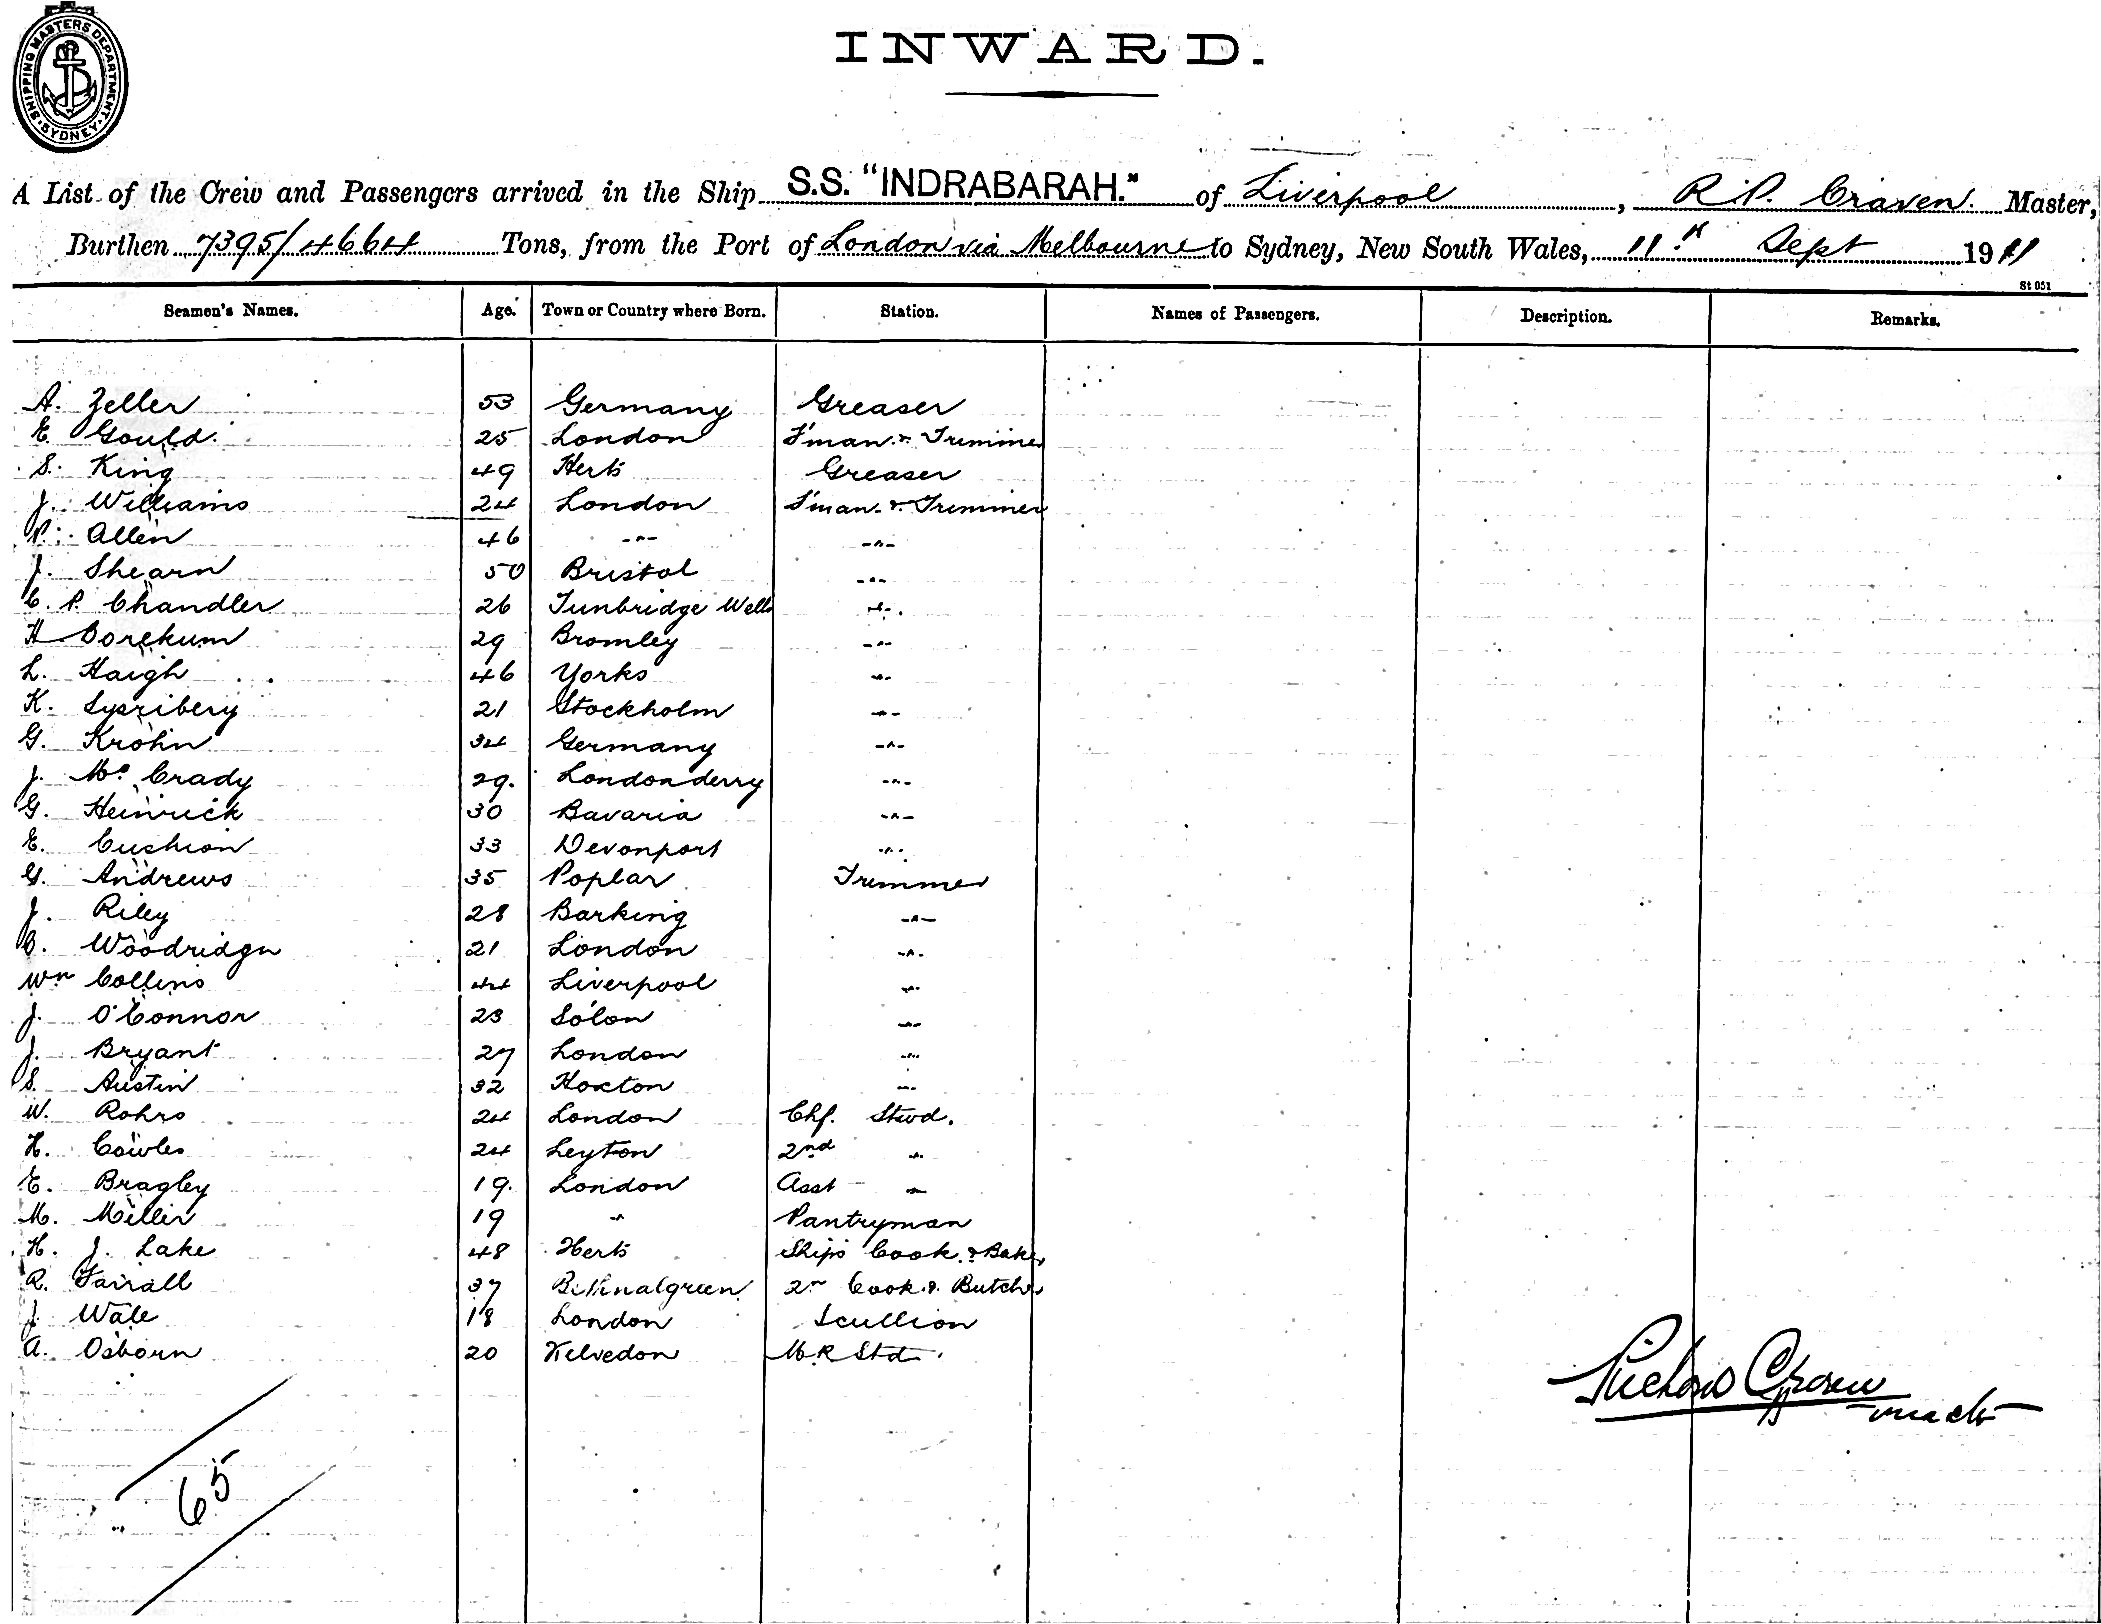 SHIPPING MASTERS DEPARTMENT. SYDNEY.
INWARD.
A List of the Crew and Passengers arrived in the Ship S.S. "INDRABARAH." of Liverpool, R.P. Craven. Master,
Burthen 7395/4664 Tons, from the Port of London via Melbourne to Sydney, New South Wales, 11th Sept 1911
St 051
Seamen's Names. Age. Town or Country where Born. Station. Names of Passengers. Description. Remarks.
A. Zeller 53 Germany Greaser
E. Gould 25 London F'man. & Trimmer
S. King 49 Herts Greaser
J. Williams 24 London F'man. & Trimmer
P. Allen 46 -"- -"-
J. Shearn 50 Bristol -"-
C. P. Chandler 26 Tunbridge Wells -"-
H 29 Bromley -"-
L. Haigh 46 Yorks -"-
K. 21 Stockholm -"-
G. Krohn 34 Germany -"-
J. Mc Crady 29. Londonderry -"-
G. Heinrick 30 Bavaria -"-
E. Cushion 33 Devonport -"-
G. Andrews 35 Poplar Trimmer
J. Riley 28 Barking -"-
Woodridge 21 London -"-
Wm Collins 44 Liverpool -"-
J. O'Connor 23 -"-
J. Bryant 27 London -"-
S. Austin 32 Hoxton -"-
W. Rohrs 24 London Chf. Stwd.
H. Cowles 24 Leyton 2nd "
E. Bragley 19. London Asst "
M. Miller 19 " Pantryman
H. J. Lake 48 Herts Ships Cook & Baker
R. Farrall 37 Bethnalgreen 2nd Cook & Butcher
J. Wale 18 London Scullion
A. Osborn 20 Kelvedon M.R Std.
Richard Craven
master
65